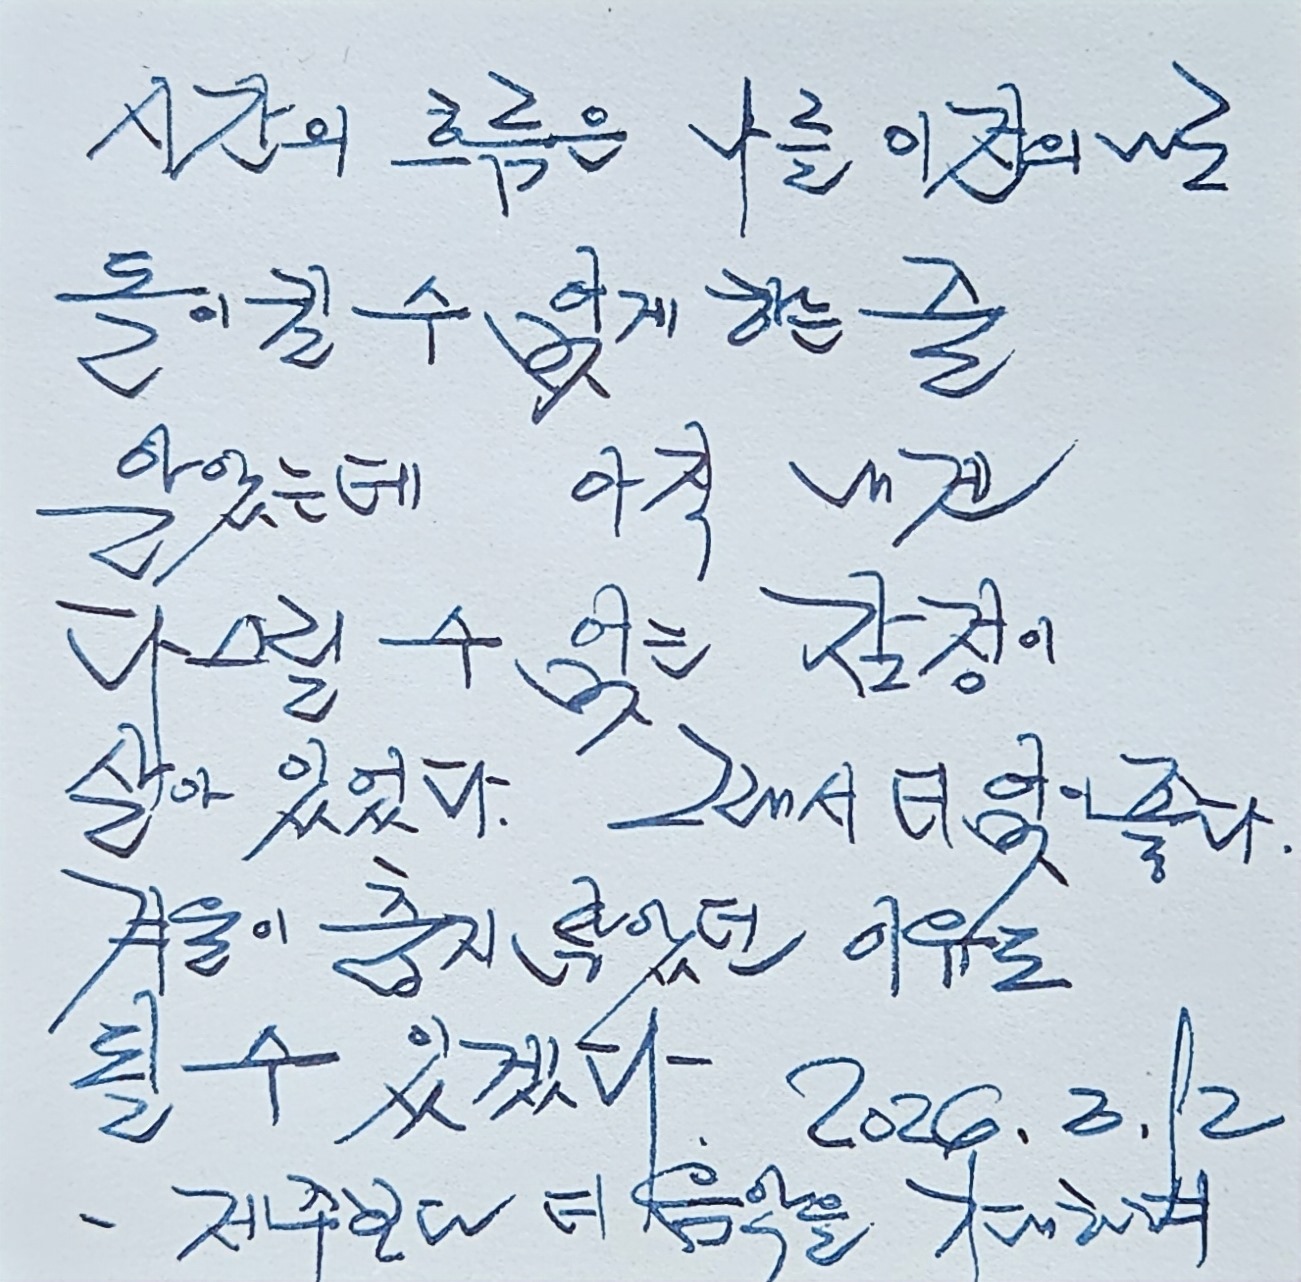 시간의 흐름은 나를 이전의 나로
돌이킬 수 없게 하는 줄
알았는데 아직 내겐
다스릴 수 없는 감정이
살아 있었다. 그래서 더없이 좋다.
겨울이 춥지 않았던 이유도
될 수 있겠다. 2026. 3. 12
- 제주한다 더 음악을